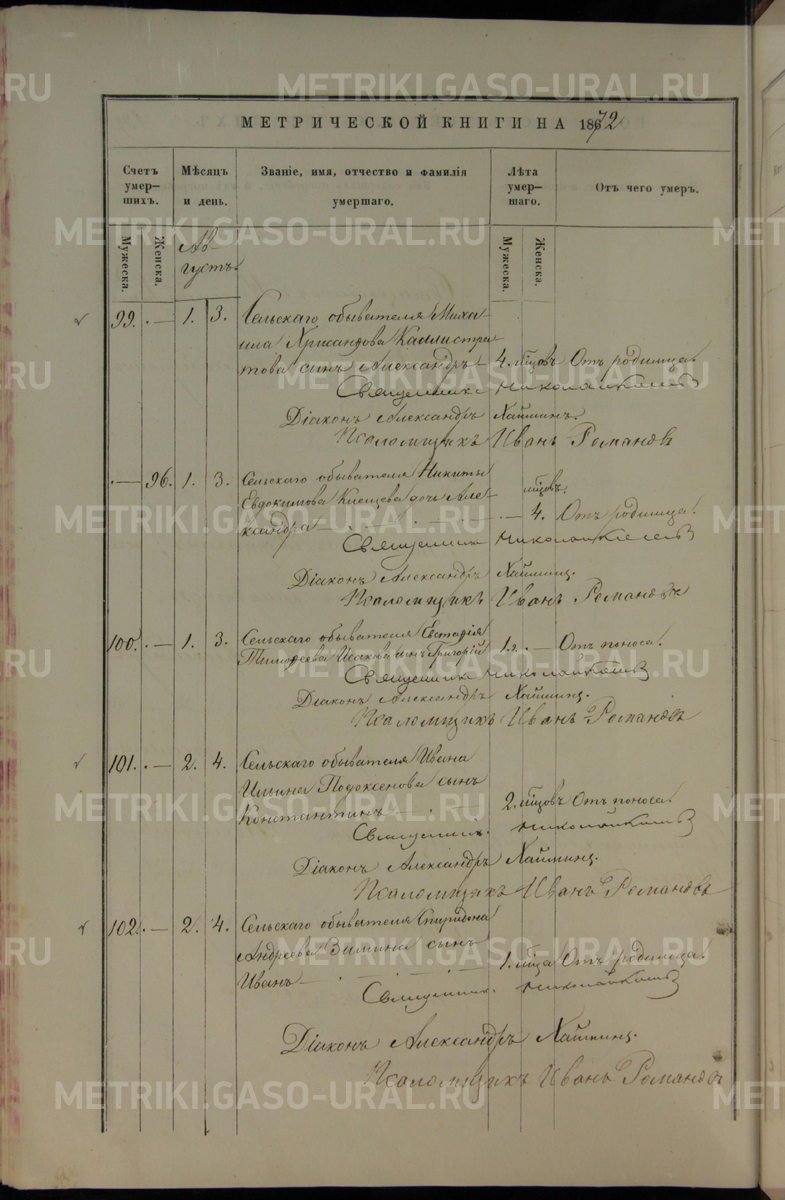 МЕТРИЧЕСКОЙ КНИГИ НА 1872
Счетъ умер-шихъ.
Мѣсяцъ и день.
Званіе, имя, отчество и фамилія умершаго.
Лѣта умер-шаго.
Отъ чего умеръ.
Мужеска.
Женска.
Ав-
густъ.
Мужеска.
Женска.
99. — 1. 3. Сельскаго обывателя Миха-
ила Хрисанфова Каллистра-
това сынъ Александръ — 4. мѣцовъ Отъ родимца.
Священникъ Николай
Діаконъ Александръ Хайминъ.
Псаломщикъ Иванъ Романовъ
— 96. 1. 3. Сельскаго обывателя Никиты
Евдокимова дочь Але-
мѣцовъ.
ксандра — 4. Отъ родимца.
Священникъ Николай
Діаконъ Александръ Хайминъ.
Псаломщикъ Иванъ Романовъ
100. — 1. 3. Сельскаго обывателя Евстафія
Тимофеева Исакова сынъ Григорій 1. г. — Отъ поноса.
Священникъ Николай
Діаконъ Александръ Хайминъ.
Псаломщикъ Иванъ Романовъ
101. — 2. 4. Сельскаго обывателя Ивана
Ильина сынъ
Константинъ — 2. мѣцовъ Отъ поноса.
Священникъ Николай
Діаконъ Александръ Хайминъ.
Псаломщикъ Иванъ Романовъ
102. — 2. 4. Сельскаго обывателя Спиридона
Андреева Зимина сынъ
Иванъ — 1. мѣца Отъ родимца.
Священникъ Николай
Діаконъ Александръ Хайминъ.
Псаломщикъ Иванъ Романовъ
METRIKI.GASO-URAL.RU